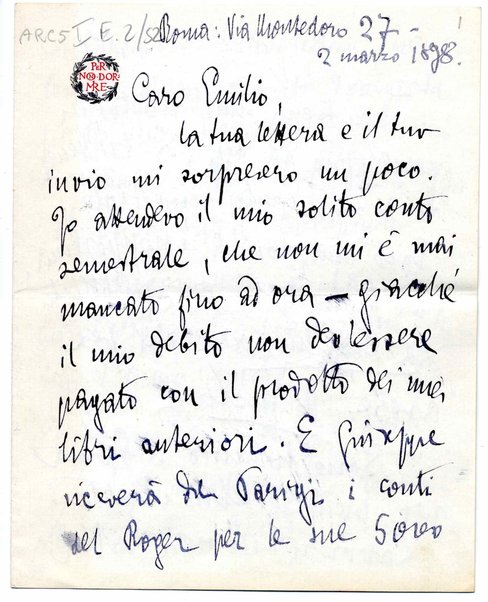 ARC5 I E. 2/52
Roma: Via Montedoro 27 -
2 marzo 1898.
1
PER
NON DOR
MIRE
Caro Emilio,
la tua lettera e il tuo
invio mi sorpresero un poco.
Io attendevo il mio solito conto
semestrale, che non mi è mai
mancato fino ad ora – giacché
il mio debito non dev'essere
pagato con il prodotto dei miei
libri anteriori. E Giuseppe
riceverà da Parigi i conti
del Roger per le sue